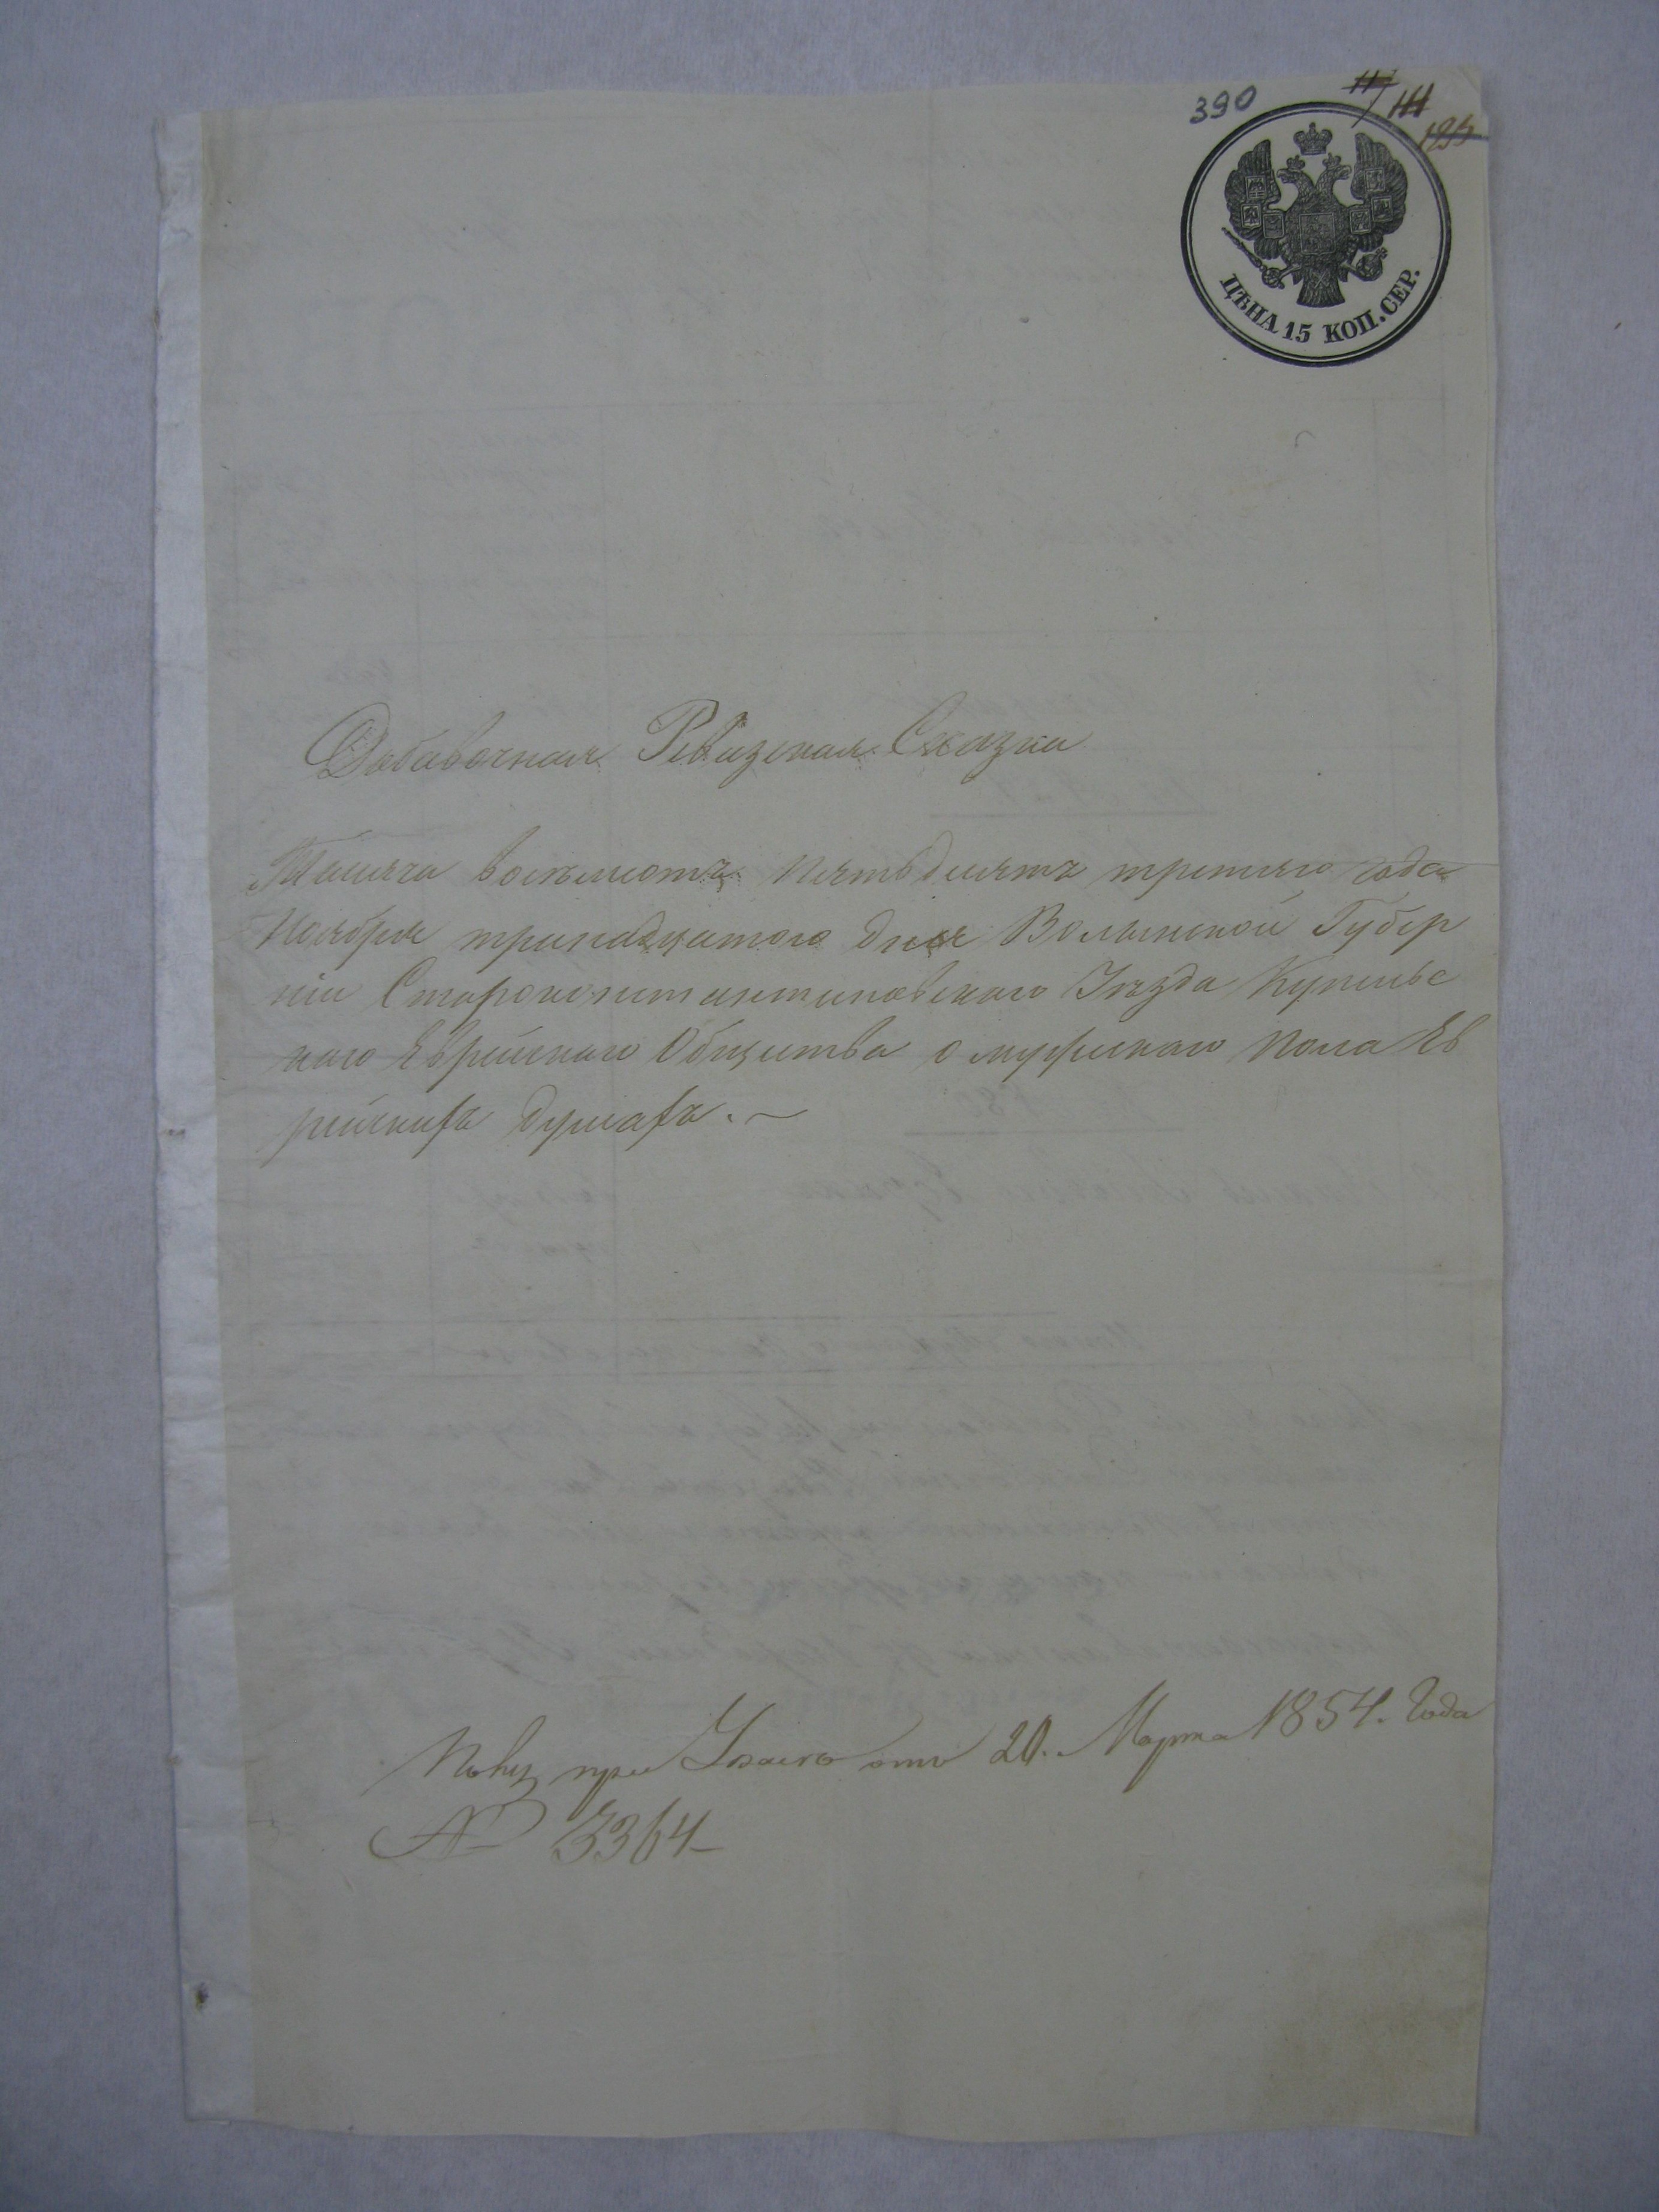 390
ЦѢНА 15 КОП. СЕР.
Добавочная Ревизская Сказка
Тысяча восемсотъ пятьдесятъ третяго года
Ноября тринадцатого дня Волынской Губер
ніи Староконстантиновскаго Уѣзда Купельс
каго Еврейскаго Общества о мужескаго пола Ев
рейскихъ душахъ.
при Указе отъ 20. Марта 1854. Года
№ 3364